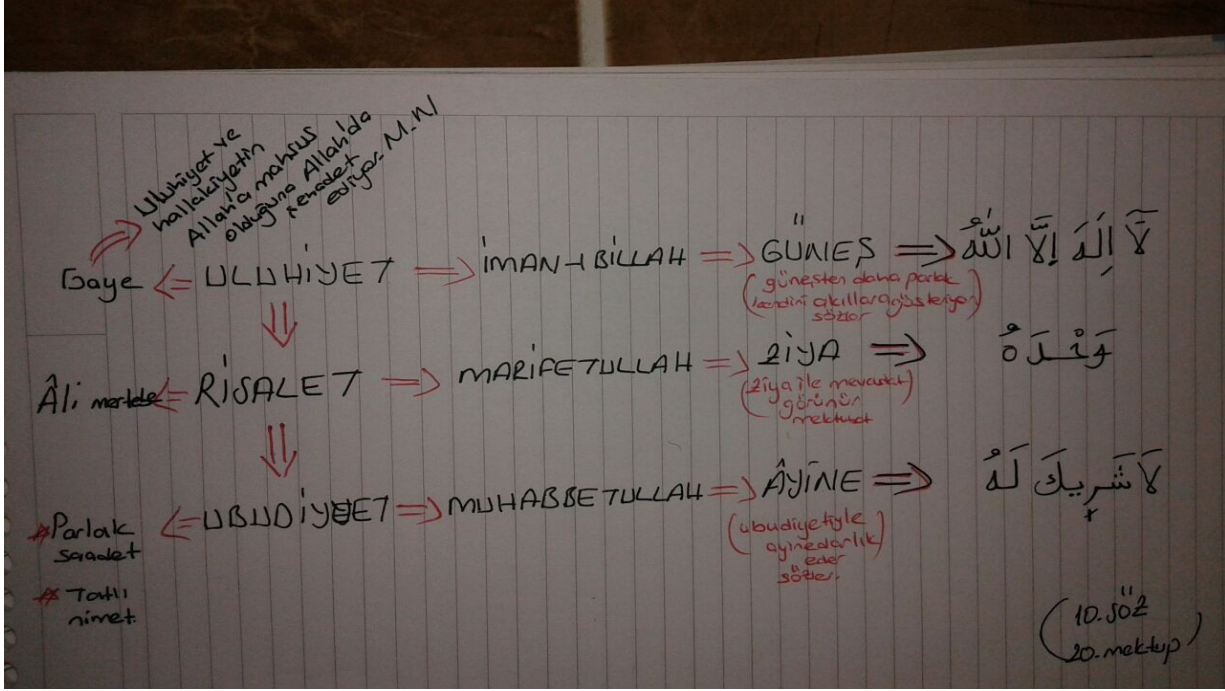 Uluhiyet ve
hallakiyetin
Allah'a mahsus
olduğuna Allah'da
şehadet
ediyor. M.N
Gaye ⇐ ULUHİYET ⇒ İMAN-I BİLLAH ⇒ GÜNEŞ ⇒ لَآ اِلَهَ اِلَّا اللّٰهُ
(güneşten daha parlak
kendini akıllara gösteriyor)
sözler
Âli mertebe ⇐ RİSALET ⇒ MARİFETULLAH ⇒ ZİYA ⇒ وَحْدَهُ
(Ziya ile mevcudat
görünür)
mektubat
Parlak saadet ⇐ UBUDİYET ⇒ MUHABBETULLAH ⇒ ÂYİNE ⇒ لَا شَرِيكَ لَهُ
(ubudiyetiyle
ayinedarlık
eder)
sözler.
Tatlı
nimet.
(10.söz
20.mektup)